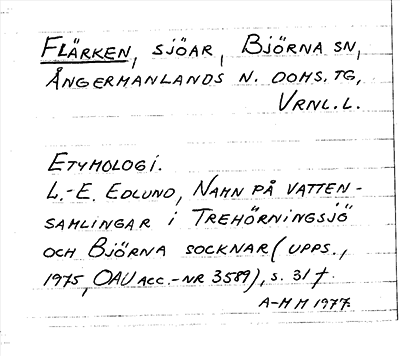 FLÄRKEN, SJÖAR, BJÖRNA SN,
ÅNGERMANLANDS N. DOMS. TG,
VRNL.L.
ETYMOLOGI.
L.-E. EDLUND, NAMN PÅ VATTEN-
SAMLINGAR I TREHÖRNINGSJÖ
OCH BJÖRNA SOCKNAR (UPPS.,
1975, OAU ACC.-NR 3589), S. 31 f.
A-M H 1977.